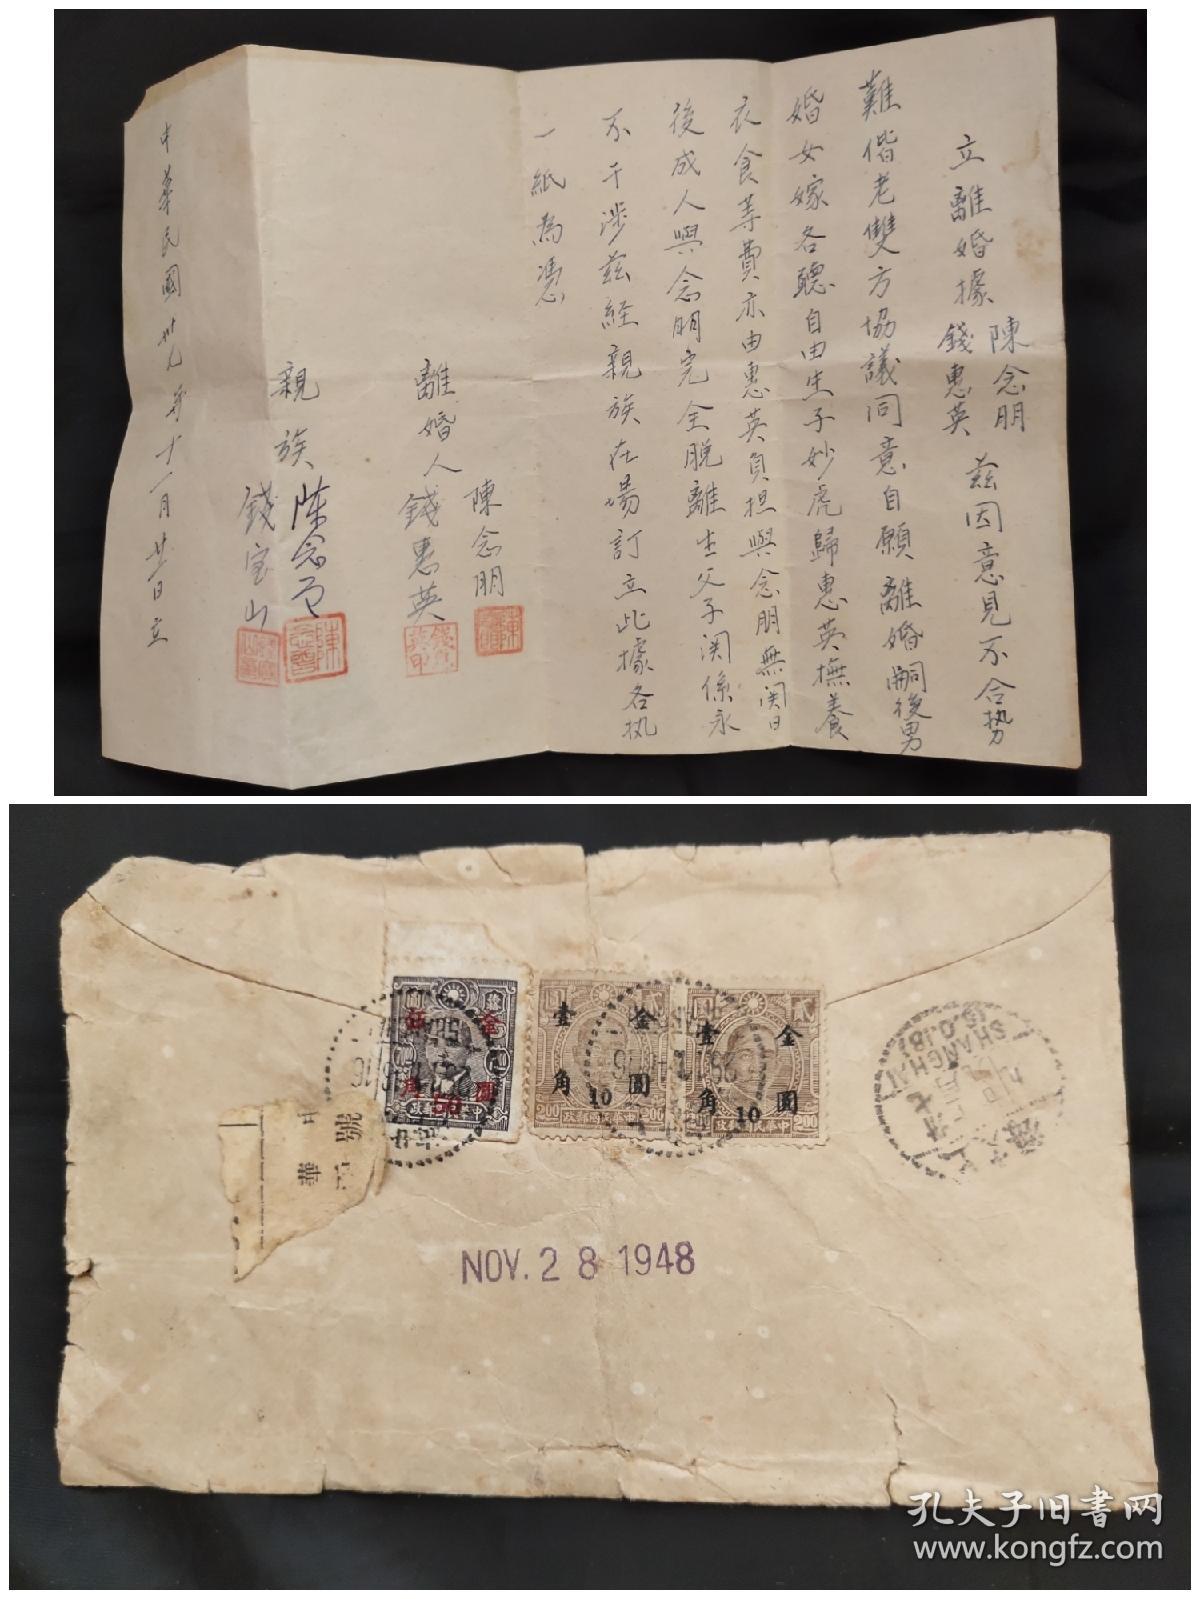 立離婚據 陳念朋 錢惠英 茲因意見不合勢
難偕老雙方協議同意自願離婚嗣後男
婚女嫁各聽自由生子妙虎歸惠英撫養
衣食等費亦由惠英負担與念朋無関日
後成人與念朋完全脫離生父子関係永
不干涉茲経親族在場訂立此據各执
一紙為憑
離婚人 陳念朋
錢惠英
親族 陈念
錢宝山
中華民國卅九年十一月廿日立
金圓
伍角
50
金圓
壹角
10
200
中華民國郵政
金圓
壹角
10
貳
200
200
中華民國郵政
號
華
上海
SHANGHAI
NOV. 28 1948
孔夫子旧书网
www.kongfz.com